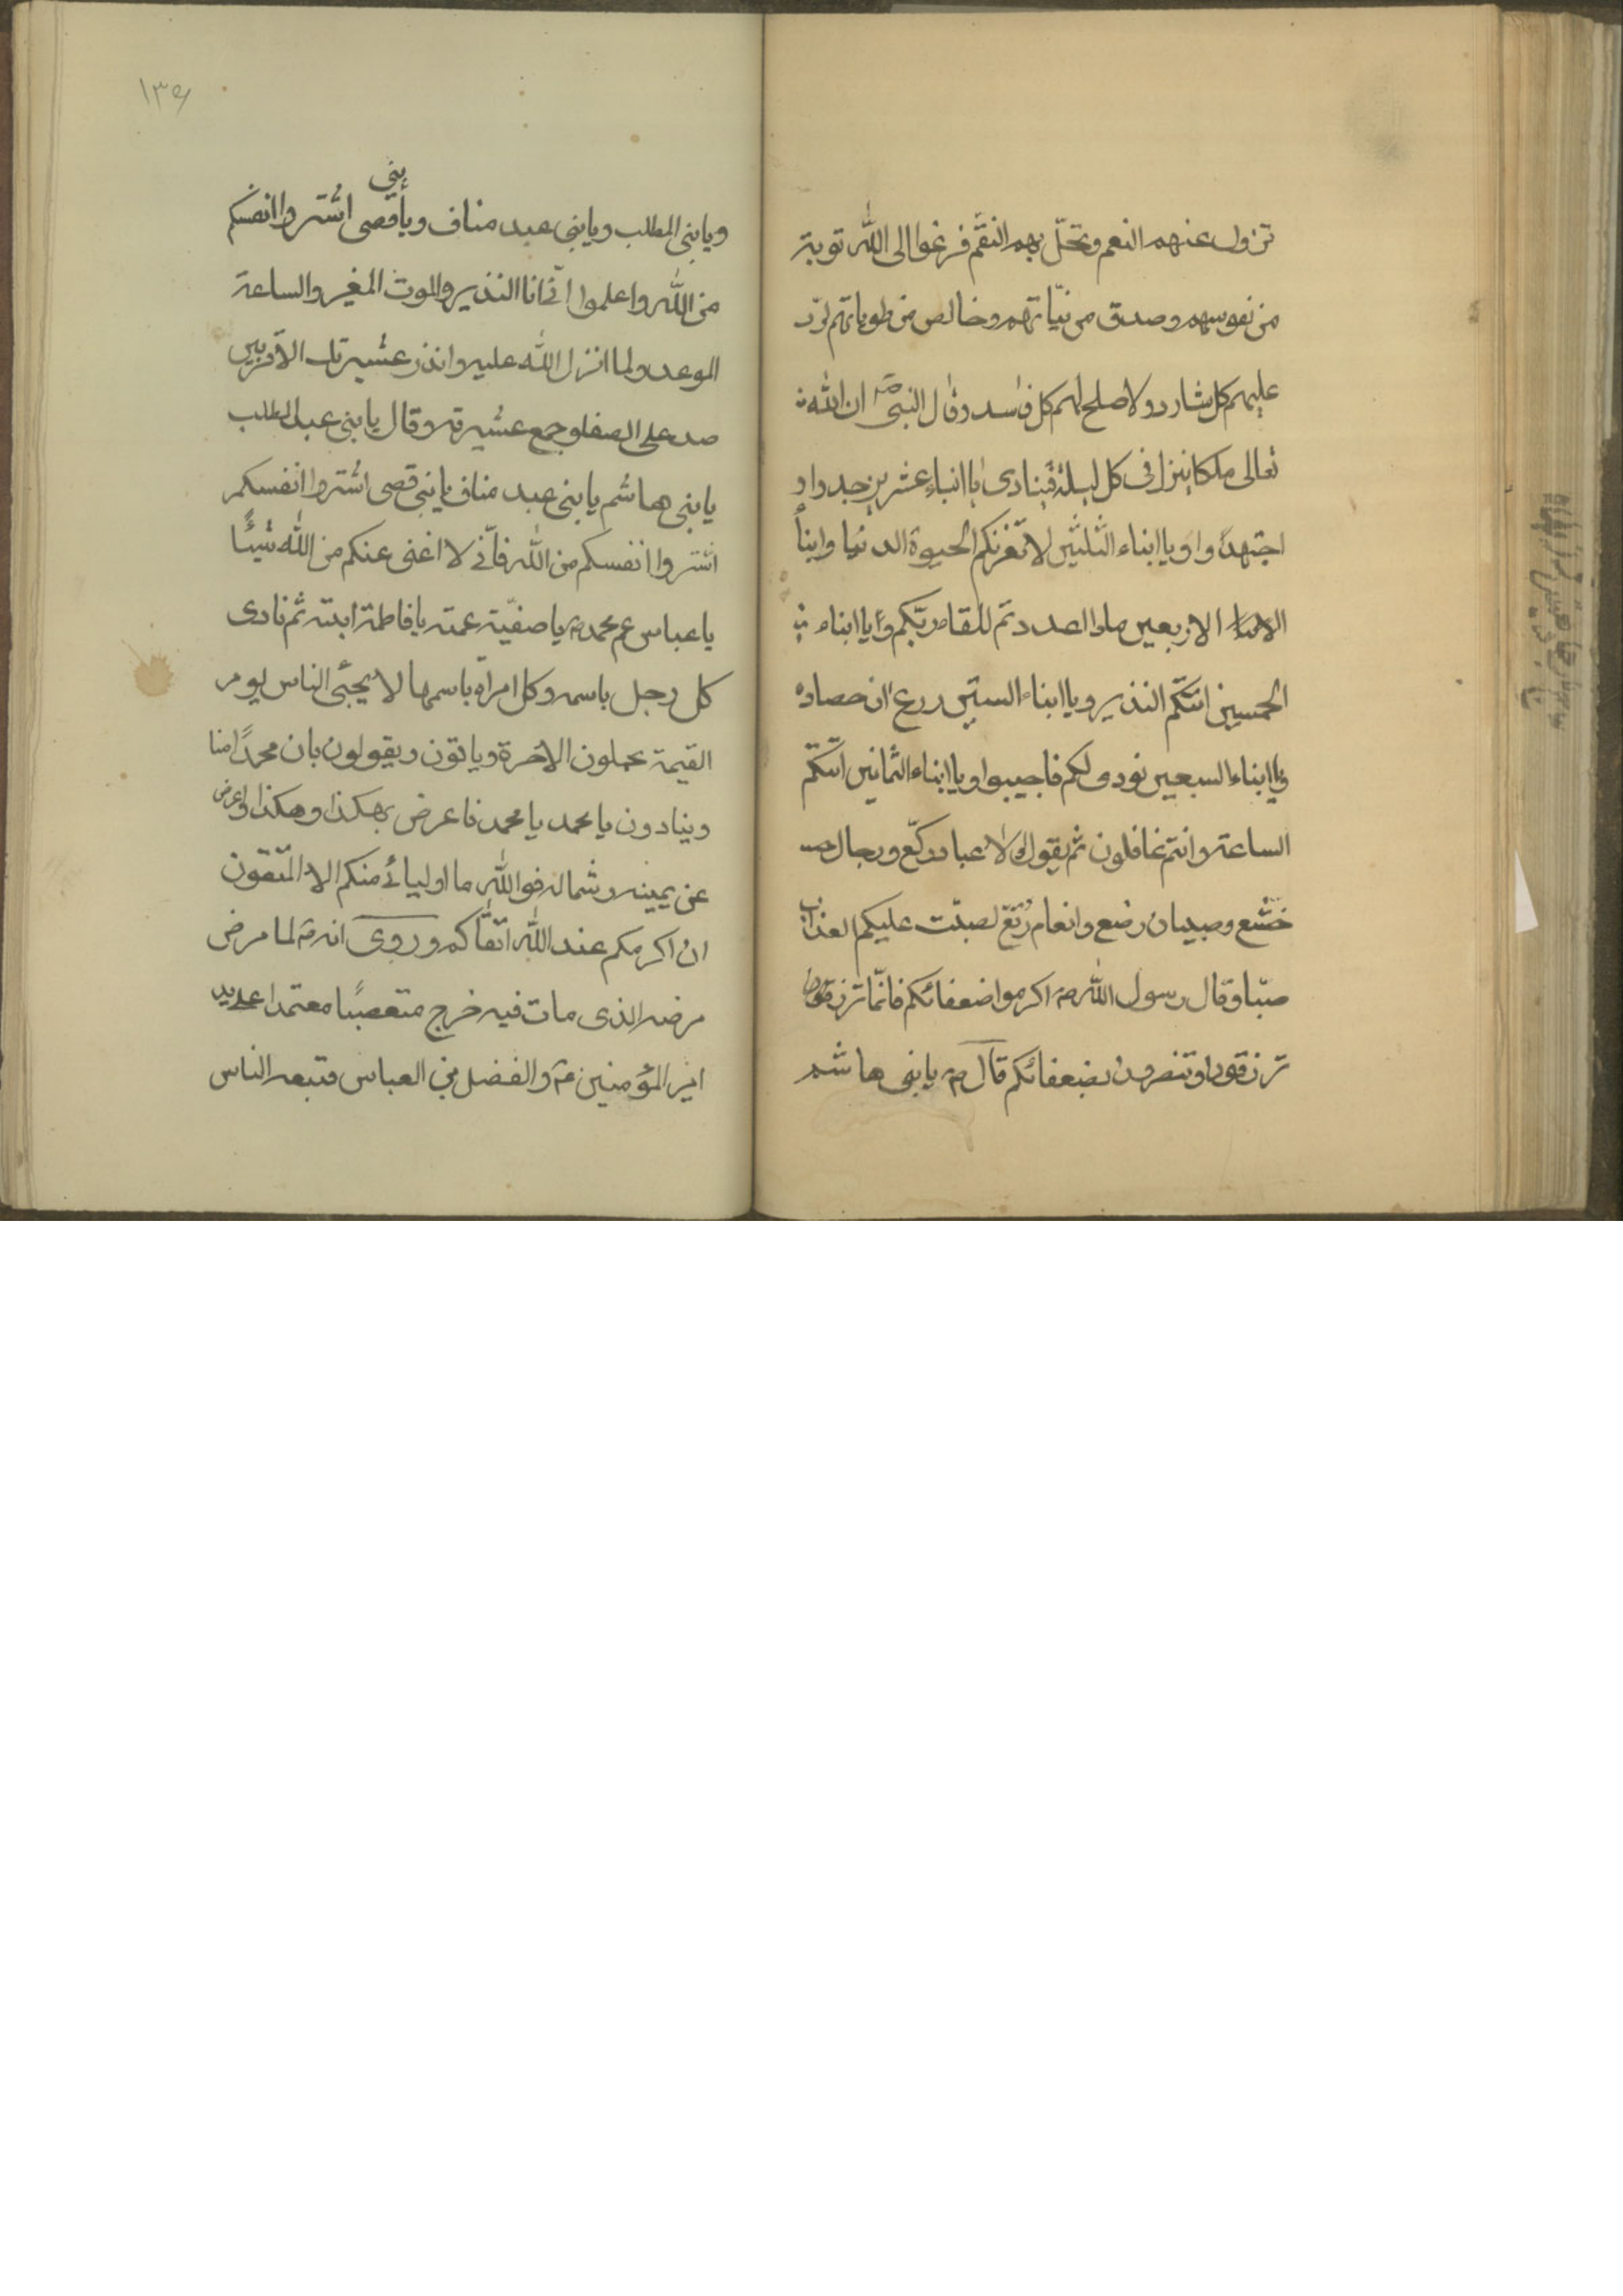 تزول عنهم النعم وتحلّ بهم النقم فزعوا الى الله توبة
من نفوسهم وصدق من نيّاتهم وخالص من طوياتهم لردّ
عليهم كل شارد ولاصلح لهم كل فاسد وقال النبى صۤ ان الله
تعالى ملكا ينزل فى كل ليلة فينادى يا ابناء عشرين جدوا و
اجتهدوا ويا ابناء الثلثين لا تغرنكم الحيوة الدنيا وابنا
الاربعين ماذا اعددتم للقاء ربّكم ويا ابناء
الخمسين اتتكم النذير ويا ابناء الستين زرع ان حصاده
ويا ابناء السبعين نودى لكم فاجيبوا ويا ابناء الثمانين اتتكم
الساعة وانتم غافلون ثم يقول لولا عباد ركّع ورجال
خشّع وصبيان رضع وانعام رتّع لصبّت عليكم العذاب
صبّا وقال رسول الله صۤ اكرموا ضعفائكم فانّما ترزقون
ترزقون وتنصرون بضعفائكم قال صۤ يا بنى هاشم
١٣٩
بنى
ويا بنى المطلب ويا بنى عبد مناف ويا قصى اشتروا انفسكم
من الله واعلموا انّى انا النذير والموت المغير والساعة
الموعد ولما انزل الله عليه وانذر عشيرتك الاقربين
صعد على الصفا وجمع عشيرته وقال يا بنى عبد المطلب
يا بنى هاشم يا بنى عبد مناف يا بنى قصى اشتروا انفسكم
اشتروا انفسكم من الله فانّى لا اغنى عنكم من الله شيئًا
يا عباس عم محمد صۤ يا صفيّة عمته يا فاطمة ابنته ثم نادى
كل رجل باسمه وكل امراة باسمها لا يجئى الناس يوم
القيمة يحملون الاخرة وياتون ويقولون بان محمدًا منا
وينادون يا محمد يا محمد فاعرض بهكذا وهكذا واعرض
عن يمينه وشماله فوالله ما اوليائى منكم الا المتقون
ان اكرمكم عند الله اتقاكم وروى انه صۤ لما مرض
مرضه الذى مات فيه خرج متعصبًا معتمدا على يد
امير المؤمنين عۤ والفضل بن العباس فتبعه الناس